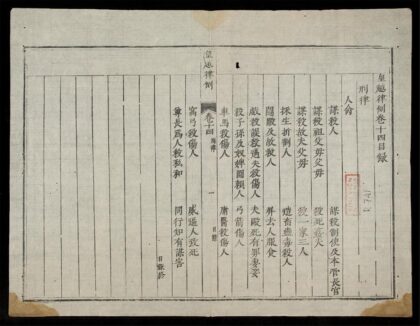 皇越律例卷十四目錄
刑律
人命
謀殺人 謀殺制使及本管長官
謀殺祖父母父母 殺死姦夫
謀殺故夫父母 殺一家三人
採生折割人 造畜蠱毒殺人
鬬毆及故殺人 屏去人服食
戲殺誤殺過失殺傷人 夫毆死有罪妻妾
殺子孫及奴婢圖賴人 弓箭傷人
皇越律例 卷十四 一 目錄
車馬殺傷人 庸醫殺傷人
窩弓殺傷人 威逼人致死
尊長為人殺私和 同行知有謀害
目錄終